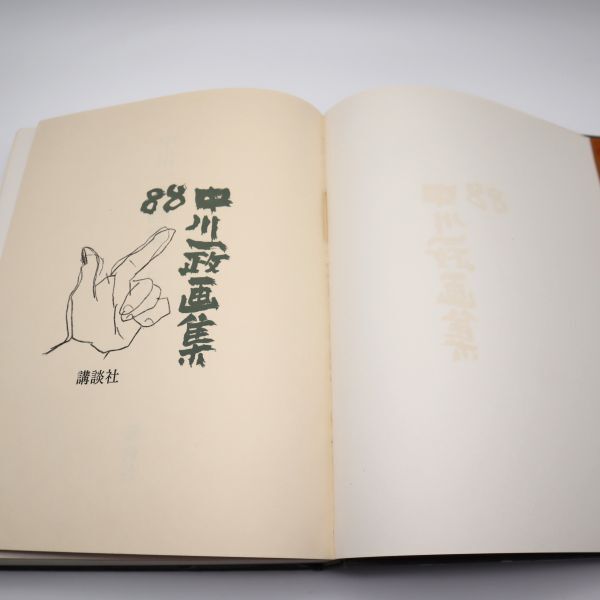 中川一政画集
88
講談社